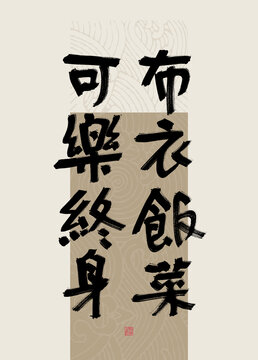 布衣飯菜
可樂終身